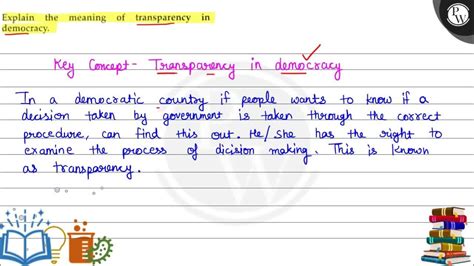 Explain the meaning of transparency in
democracy.
Key Concept- Transparency in democracy
In a democratic country if people wants to know if a
decision taken by government is taken through the correct
procedure, can find this out. He/She has the right to
examine the process of dicision making. This is known
as transparency.